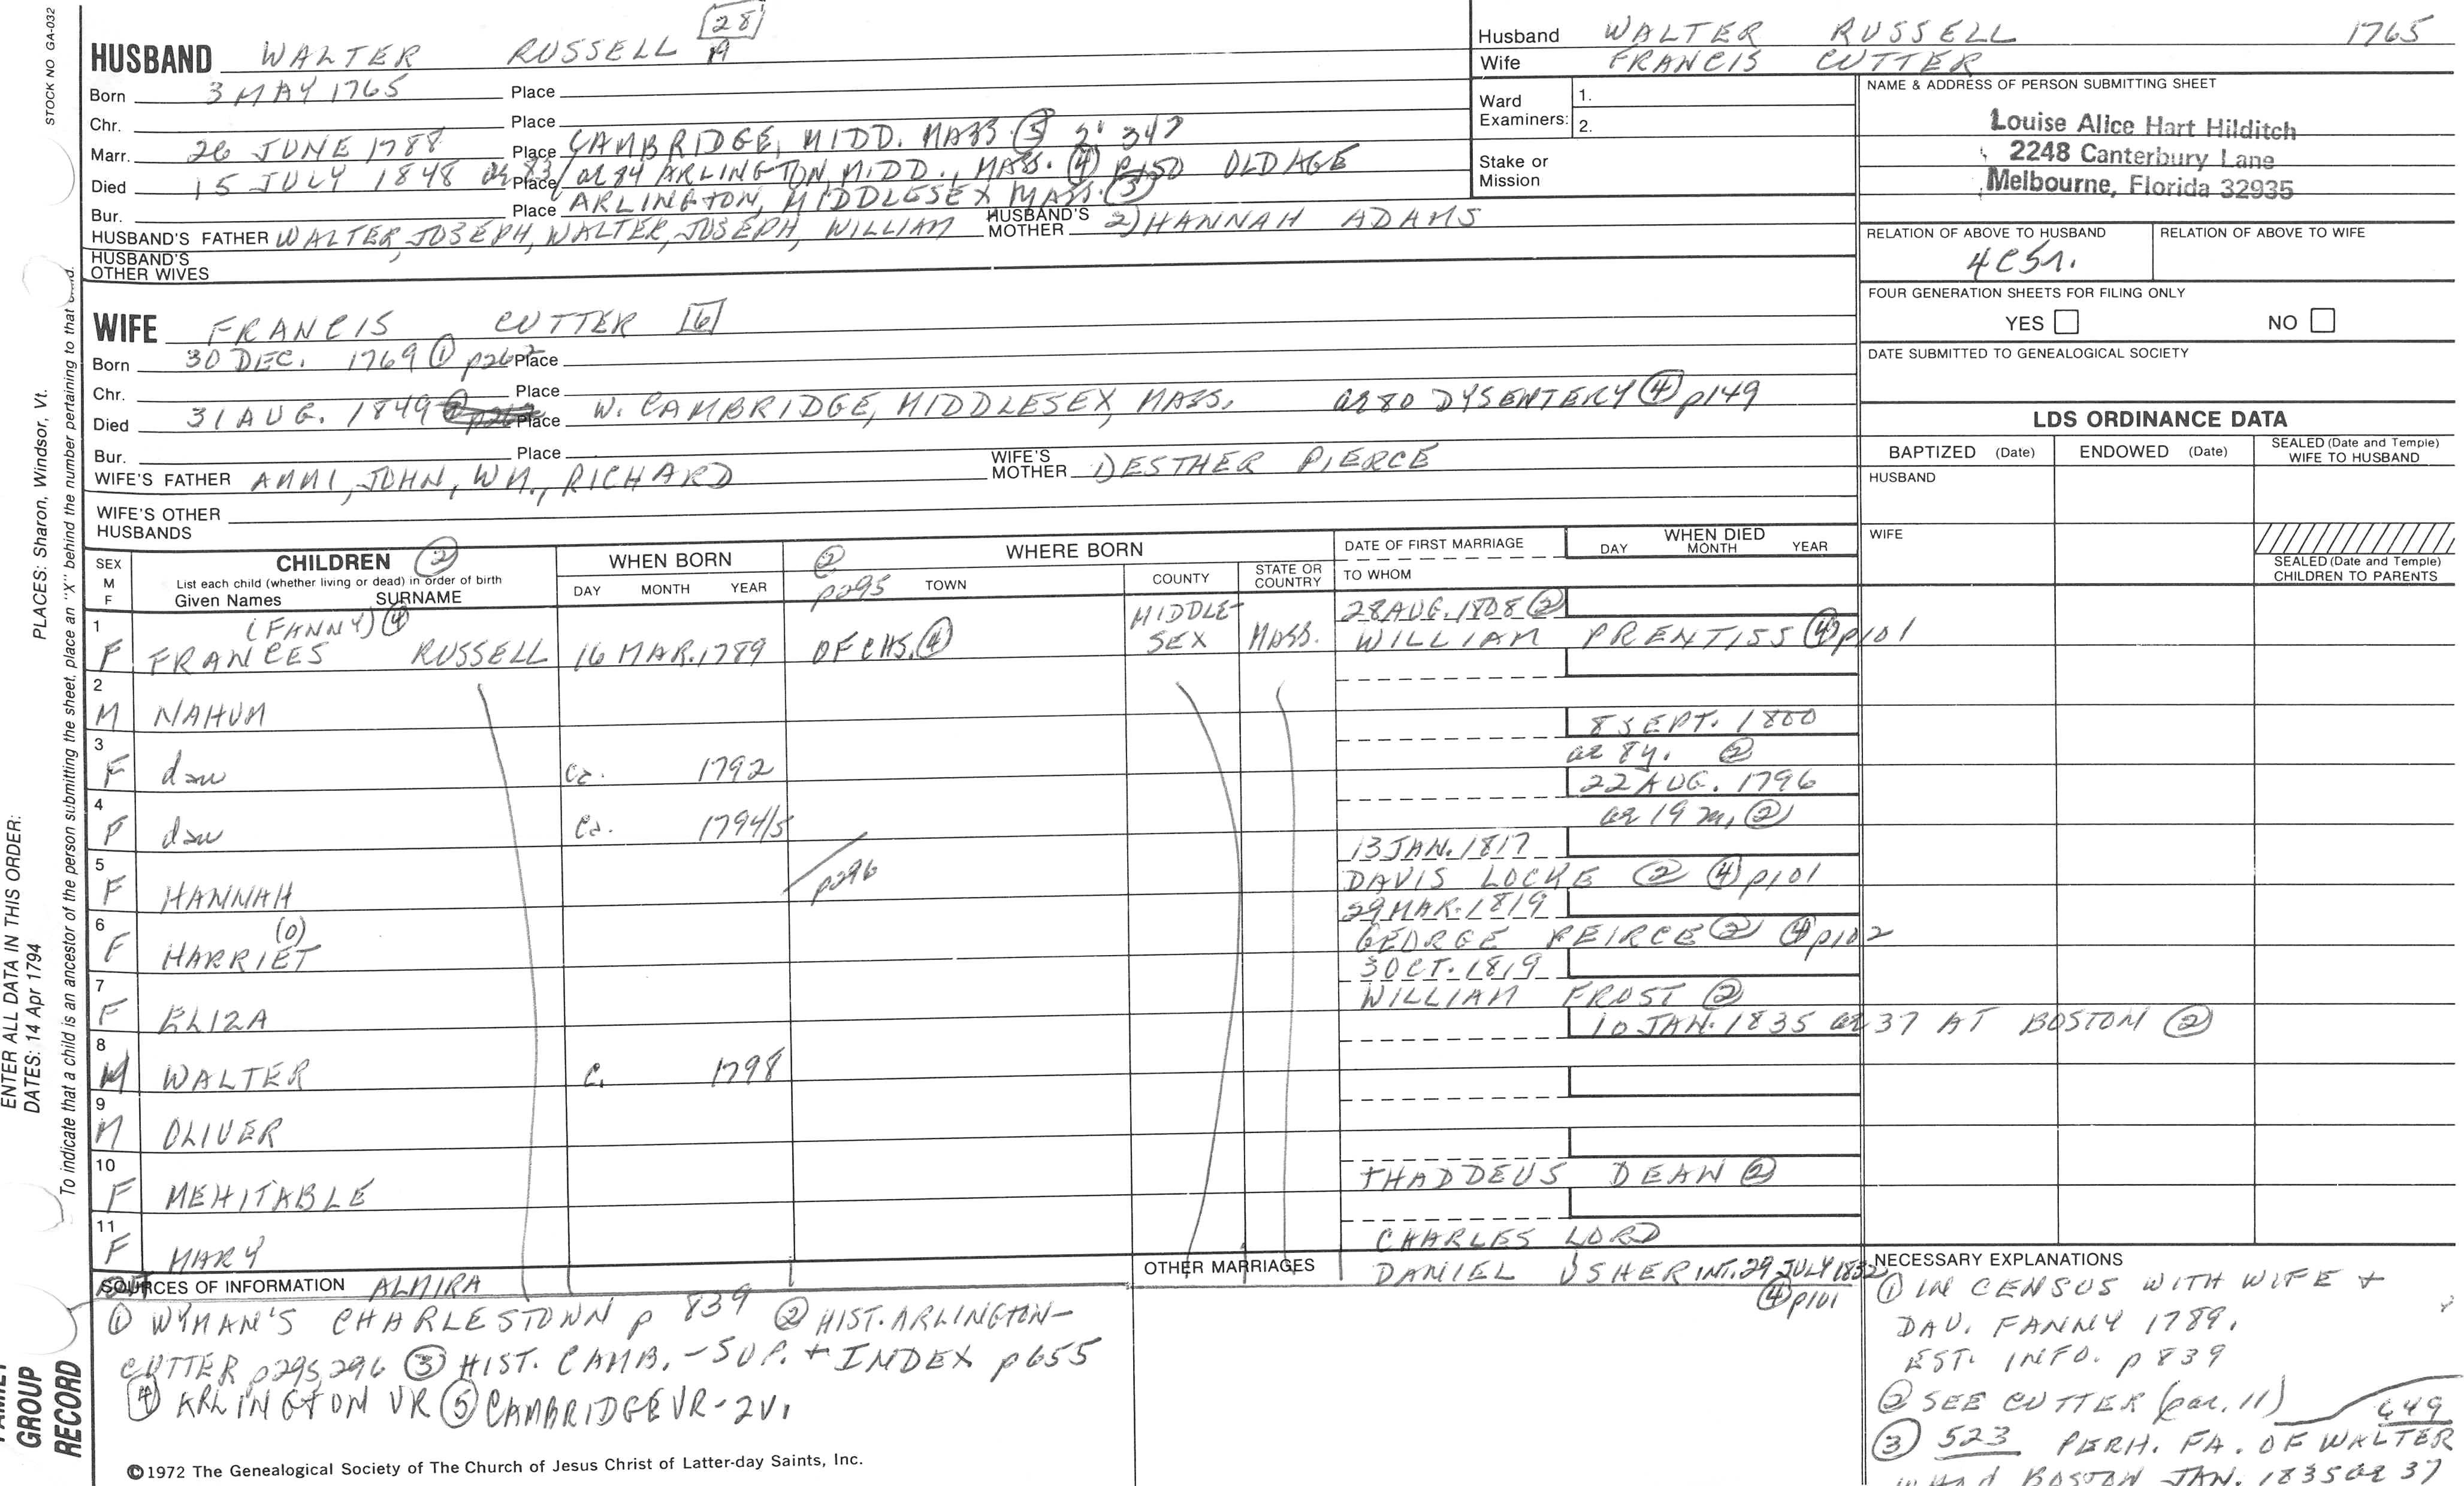 STOCK NO GA-032
PLACES: Sharon, Windsor, Vt.
ENTER ALL DATA IN THIS ORDER:
DATES: 14 Apr 1794
To indicate that a child is an ancestor of the person submitting the sheet, place an "X" behind the number pertaining to that
GROUP
RECORD
28
A
HUSBAND WALTER RUSSELL
Born 3 MAY 1765 Place
Chr. Place
Marr. 26 JUNE 1788 Place CAMBRIDGE, MIDD. MASS. 5 2: 347
Died 15 JULY 1848 ae 83/ Place ae 84 ARLINGTON, MIDD., MASS. 4 p150 OLD AGE
Bur. Place ARLINGTON, MIDDLESEX MASS. 3
HUSBAND'S FATHER WALTER, JOSEPH, WALTER, JOSEPH, WILLIAM HUSBAND'S MOTHER 2) HANNAH ADAMS
HUSBAND'S OTHER WIVES
WIFE FRANCIS CUTTER 6
Born 30 DEC. 1769 1 p262 Place
Chr. Place
Died 31 AUG. 1849 Place W. CAMBRIDGE, MIDDLESEX, MASS. ae 80 DYSENTERY 4 p149
Bur. Place
WIFE'S FATHER AMMI, JOHN, WM., RICHARD WIFE'S MOTHER 1) ESTHER PIERCE
WIFE'S OTHER HUSBANDS
Husband WALTER RUSSELL 1765
Wife FRANCIS CUTTER
Ward Examiners: 1.
2.
Stake or Mission
NAME & ADDRESS OF PERSON SUBMITTING SHEET
Louise Alice Hart Hilditch
2248 Canterbury Lane
Melbourne, Florida 32935
RELATION OF ABOVE TO HUSBAND RELATION OF ABOVE TO WIFE
4C5r.
FOUR GENERATION SHEETS FOR FILING ONLY
YES NO
DATE SUBMITTED TO GENEALOGICAL SOCIETY
LDS ORDINANCE DATA
BAPTIZED (Date) ENDOWED (Date) SEALED (Date and Temple) WIFE TO HUSBAND
HUSBAND
WIFE
SEALED (Date and Temple) CHILDREN TO PARENTS
SEX M F
CHILDREN 2
List each child (whether living or dead) in order of birth
Given Names SURNAME
WHEN BORN
DAY MONTH YEAR
2 p295
WHERE BORN
TOWN COUNTY STATE OR COUNTRY
DATE OF FIRST MARRIAGE
TO WHOM
WHEN DIED
DAY MONTH YEAR
1 F FRANCES (FANNY) 4 RUSSELL 16 MAR. 1789 OF CHS. 4 MIDDLE-SEX MASS. 28 AUG. 1808 2
WILLIAM PRENTISS 4 p101
2 M NAHUM
3 F dau ca. 1792 8 SEPT. 1800
ae 8y. 2
4 F dau ca. 1794/5 22 AUG. 1796
ae 19 m. 2
5 F HANNAH p296 13 JAN. 1817
DAVIS LOCKE 2 4 p101
6 F HARRIET (O) 29 MAR. 1819
GEORGE PEIRCE 2 4 p102
7 F ELIZA 3 OCT. 1819
WILLIAM FROST 2
8 M WALTER c. 1798 10 JAN. 1835 ae 37 AT BOSTON 2
9 M OLIVER
10 F MEHITABLE THADDEUS DEAN 2
11 F MARY CHARLES LORD
SOURCES OF INFORMATION ALMIRA OTHER MARRIAGES DANIEL USHER INT. 29 JULY 1832
4 p101
1 WYMAN'S CHARLESTOWN p 839 2 HIST. ARLINGTON-
CUTTER p295, 296 3 HIST. CAMB. - SUP. + INDEX p655
4 ARLINGTON VR 5 CAMBRIDGE VR - 2V.
©1972 The Genealogical Society of The Church of Jesus Christ of Latter-day Saints, Inc.
NECESSARY EXPLANATIONS
1 IN CENSUS WITH WIFE +
DAU. FANNY 1789.
EST. INFO. p 839
2 SEE CUTTER (par. 11)
3 523 PERH. FA. OF WALTER
BOSTON JAN. 1835 ae 37